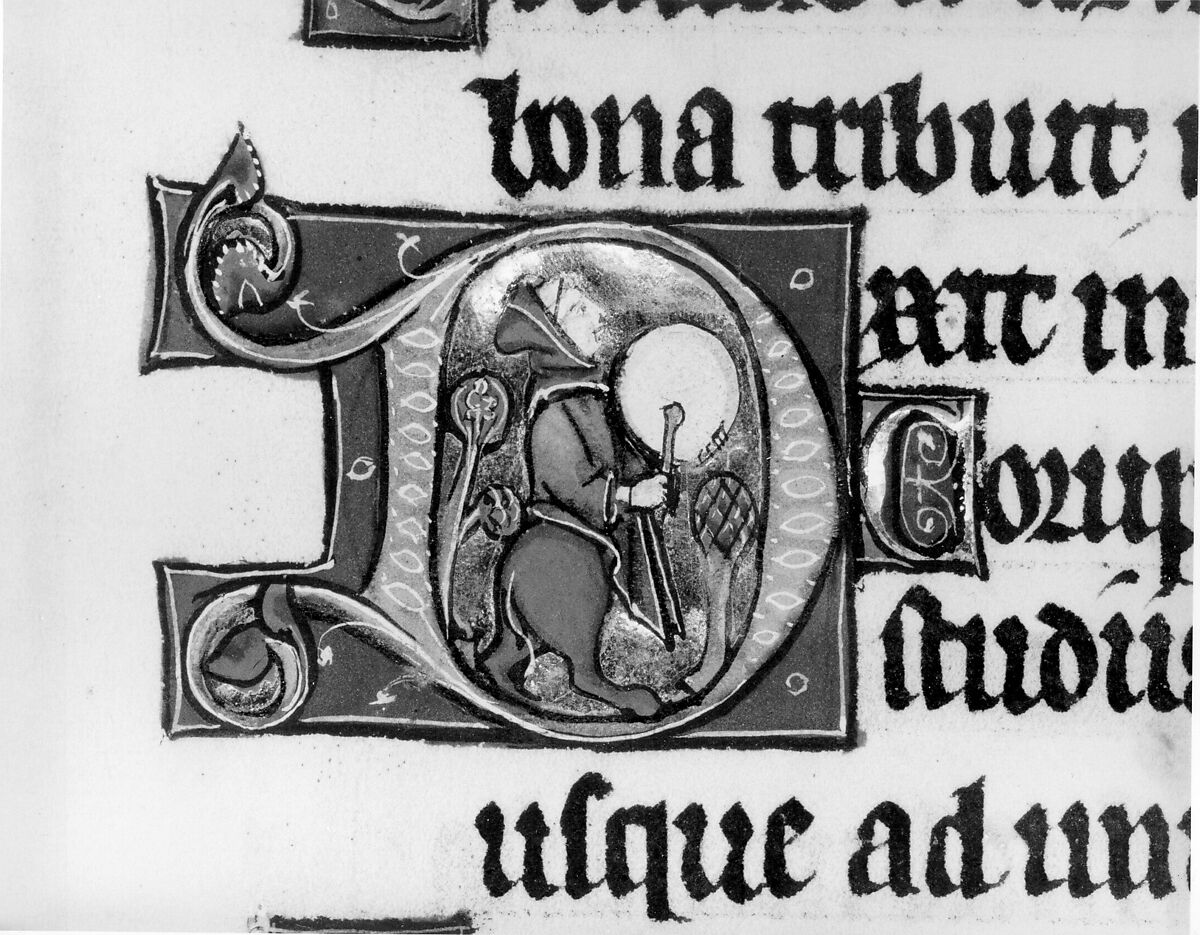 bona tribuit
Dixit in
Corrup
studiis
usque ad